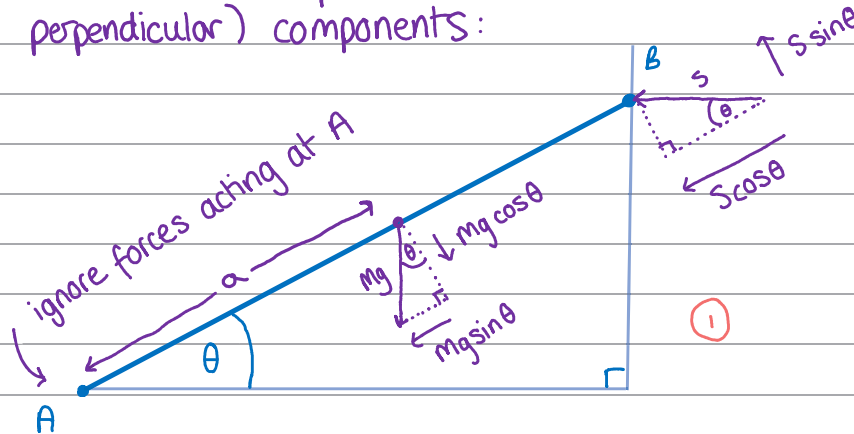 perpendicular) components:
B
S
S sinθ
θ
S cosθ
ignore forces acting at A
a
mg
θ
mg cosθ
mg sinθ
θ
A
1